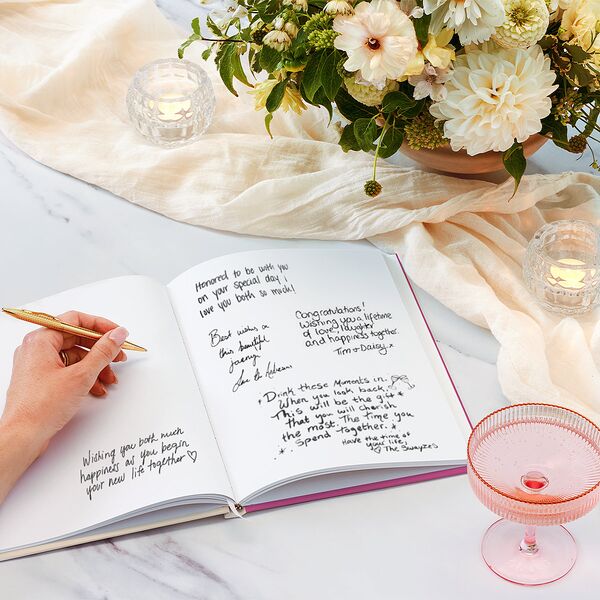 Wishing you both much
happiness as you begin
your new life together ♡
Honored to be with you
on your special day i
love you both so much!
Best wishes on
this beautiful
Congratulations!
Wishing you a lifetime
of love, laughter
and happiness together.
Tim & Daisy x
Drink these Moments in.
When you look back,
This will be the gift
that you will cherish
the most. The time you
Spend together.
Have the time of
your life,
♡ The Swayzes